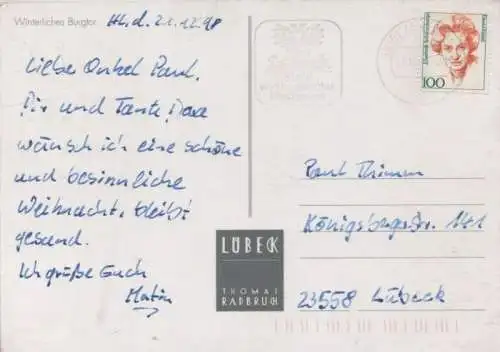 Winterliches Burgtor
Hl, d. 21.12.98
Lieber Onkel Paul,
Dir und Tante Dora
wünsch ich eine schöne
und besinnliche
Weihnacht, bleibt
gesund.
Ich grüße Euch
Martin
100
Paul Thimm
Königsbergerstr.
23558 Lübeck
LÜBECK
THOMAS
RADBRUCH